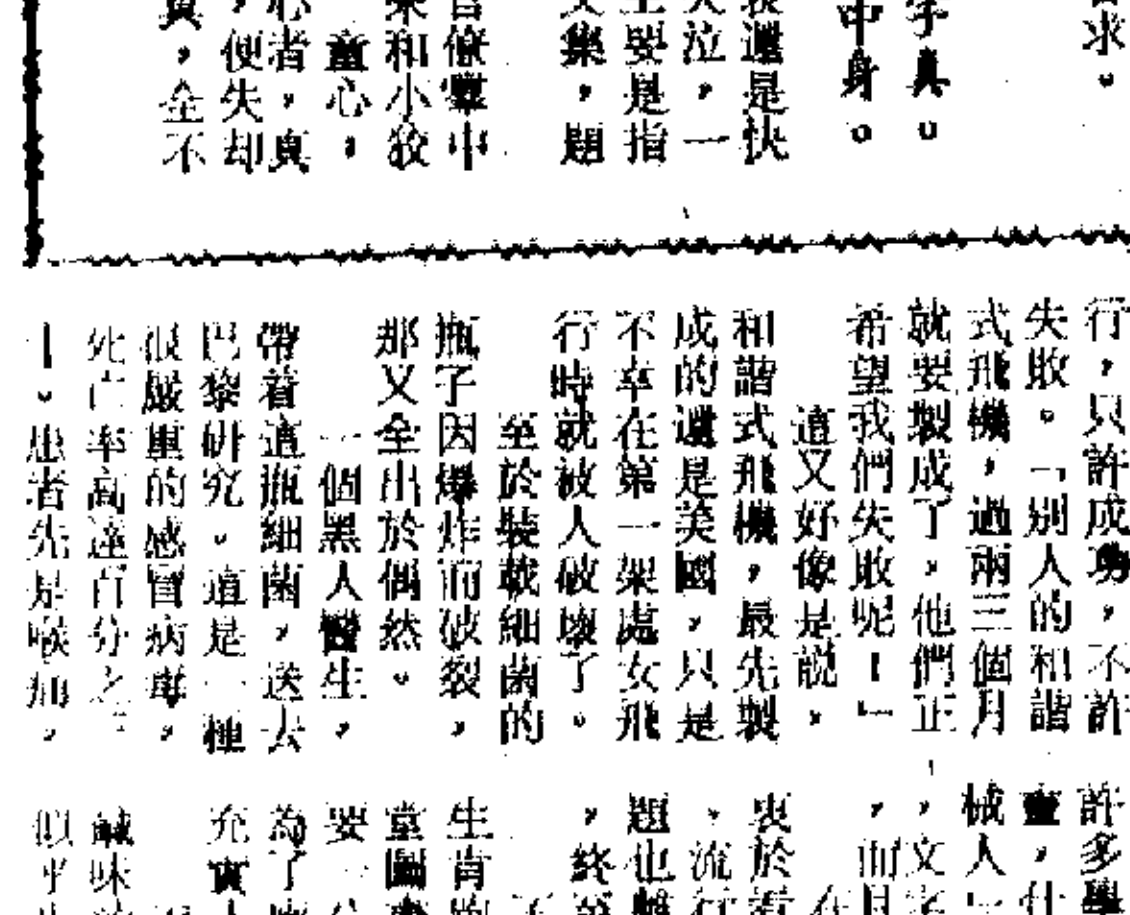 求。
字真。
中身。
還是快
泣，一
要是指
集，題
官僚羣中
來和小狡
童心，
心者，真
，便失却
真，全不
行，只許成功，不許
失敗。「別人的和諧
式飛機，過兩三個月
就要製成了，他們正
希望我們失敗呢！」
這又好像是說，
和諧式飛機，最先製
成的還是美國，只是
不幸在第一架處女飛
行時就被人破壞了。
至於裝載細菌的
瓶子因爆炸而破裂，
那又全出於偶然。
一個黑人醫生，
帶着這瓶細菌，送去
巴黎研究。這是一種
很嚴重的感冒病毒，
死亡率高達百分之
十。患者先是喉痛，
許多學
，仕
械人
，文字
，而且
在
表於
，流行
題也
，終
生肯
堂圖
要一
為了
充實
鹹味
似乎